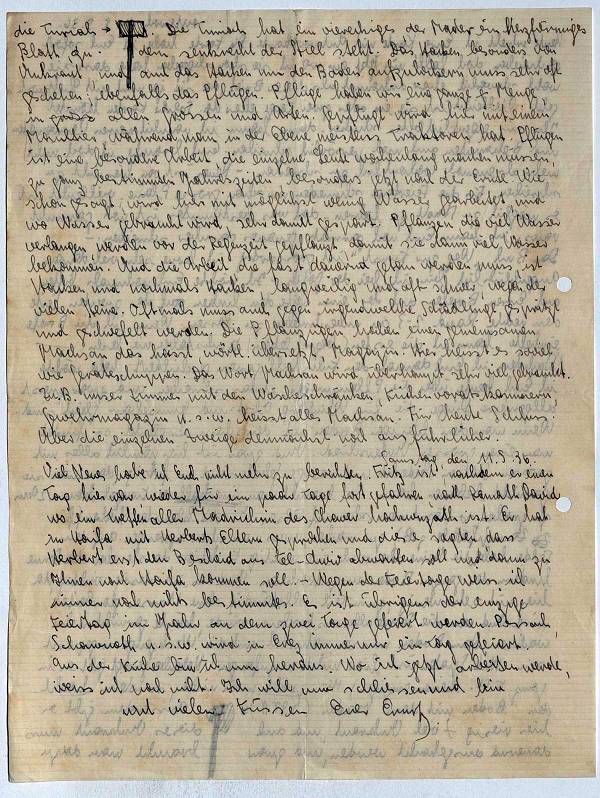 die Turiah → Die Turiah hat ein viereckiges der Mader ein herzförmiges
Blatt zu dem senkrecht der Stiel steht. Das Hacken, besonders von
Unkraut und auch das Hacken um den Boden aufzulockern muss sehr oft
geschehen, ebenfalls das Pflügen. Pflüge haben wir eine ganze Menge
in allen Grössen und Arten. Gepflügt wird hier mit einem
Maultier während man in der Ebene meistens Traktoren hat. Pflügen
ist eine besondere Arbeit, die einzelne Leute wochenlang machen müssen,
zu ganz bestimmten Jahreszeiten besonders jetzt nach der Ernte. Wie
schon gesagt wird hier mit möglichst wenig Wasser gearbeitet und
wo Wasser gebraucht wird sehr damit gespart. Pflanzen die viel Wasser
verlangen werden vor der Regenzeit gepflanzt damit sie dann viel Wasser
bekommen. Und die Arbeit die fast dauernd getan werden muss, ist
Hacken und nochmals Hacken. Langweilig und oft schwer, wegen der
vielen Steine. Oftmals muss auch gegen irgendwelche Schädlinge gespritzt
und geschwefelt werden. Die Pflanzungen haben einen gemeinsamen
Machsan das heisst wörtl. übersetzt, Magazin. Hier heisst es soviel
wie Geräteschuppen. Das Wort Machsan wird überhaupt sehr viel gebraucht.
Z.B. unser Zimmer mit den Wäscheschränken, Küchenvorratskammern,
Gewehrmagazin u.s.w. heisst alles Machsan. Für heute Schluss.
Über die einzelnen Zweige demnächst noch ausführlicher.
Samstag den 11.9.36.
Viel Neues habe ich Euch nicht mehr zu berichten. Fritz ist, nachdem er einen
Tag hier war wieder für ein paar Tage fortgefahren nach Ramath David
wo ein Treffen aller Madrichim des Chewer ist. Er hat
in Haifa mit Herberts Eltern gesprochen und diese sagten dass
Herbert erst den Bescheid aus Tel-Aviv abwarten soll und dann zu
Ihnen nach Haifa kommen soll. – Wegen der Feiertage weiss ich
immer noch nichts bestimmtes. Es ist übrigens der einzige
Feiertag im Jahr an dem zwei Tage gefeiert werden. Pessach,
Schawuoth u.s.w. wird in Erez immer nur ein Tag gefeiert.
Aus der Küche bin ich nun heraus. Wo ich jetzt arbeiten werde,
weiss ich noch nicht. Ich will nun schliessen und bin
mit vielen Küssen Euer Ernst